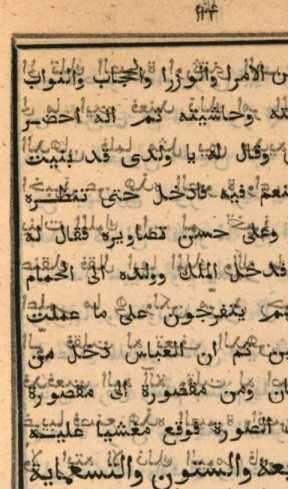 من الامرا والوزرا والحجاب والنواب
وحاشيته ثم انه احضر
وقال له يا ولدى قد بنيت
فيه فادخل حتى تنظره
وعلى حسن تصاويره فقال له
فدخل الملك وولده الى الحمام
يتفرجون على ما عملت
ثم ان العباس دخل من
ومن مقصورة الى مقصورة
الصورة فوقع مغشيا عليه
والستون والتسعماية